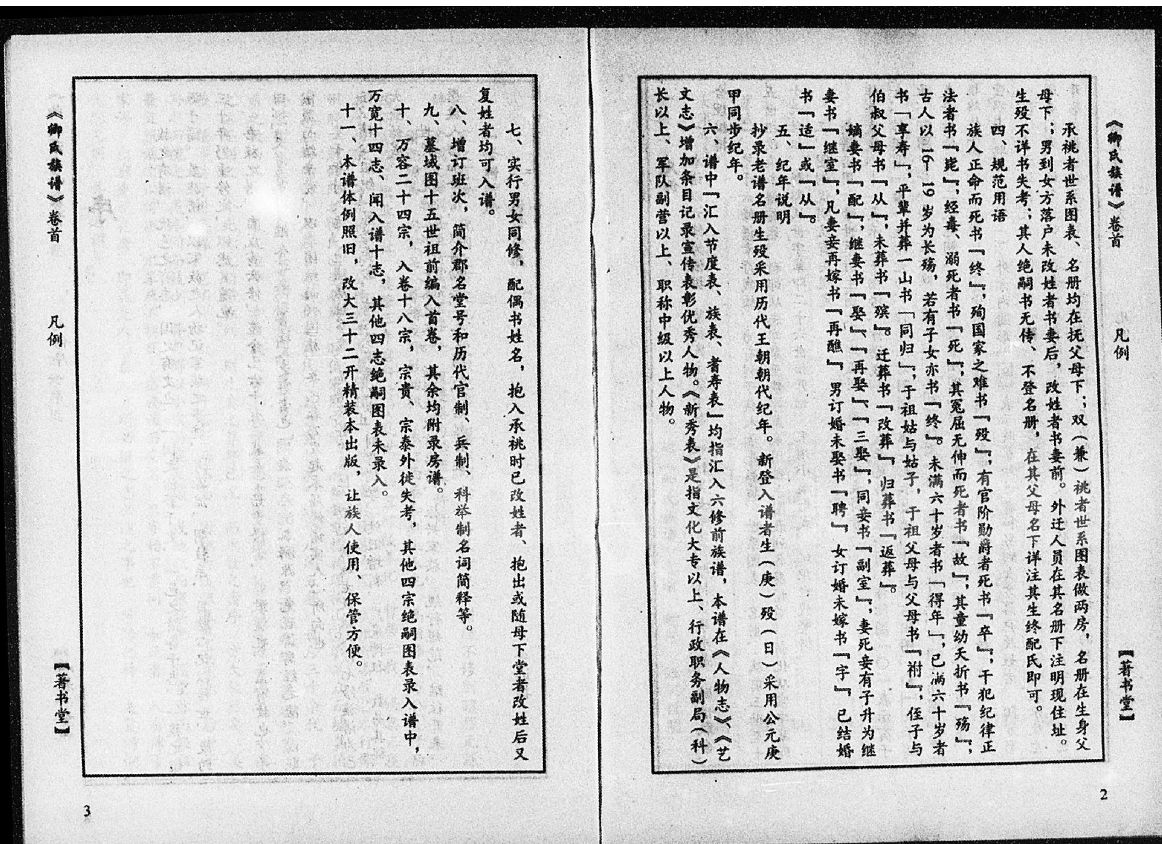 《柳氏族谱》卷首
凡例
【著书堂】
承祧者世系图表、名册均在抚父母下；双（兼）祧者世系图表做两房，名册在生身父
母下；男到女方落户未改姓者书妻后，改姓者书妻前。外迁人员在其名册下注明现住址。
生殁不详书失考；其人绝嗣书无传、不登名册，在其父母名下详注其生终配氏即可。
四、规范用语
族人正命而死书「终」，殉国家之难书「殁」；有官阶勋爵者死书「卒」；干犯纪律正
法者书「毙」；经毒、溺死者书「死」；其冤屈无伸而死者书「故」；其童幼夭折书「殇」；
古人以16—19岁为长殇，若有子女亦书「终」。未满六十岁者书「得年」，已满六十岁者
书「享寿」，平辈并葬一山书「同归」，于祖姑与姑子，于祖父母与父母书「祔」，侄子与
伯叔父母书「从」，未葬书「殡」。迁葬书「改葬」，归葬书「返葬」。
嫡妻书「配」，继妻书「娶」、「再娶」、「三娶」，同妾书「副室」，妻死妾有子升为继
妻书「继室」，凡妻妾再嫁书「再醮」，男订婚未娶书「聘」，女订婚未嫁书「字」，已结婚
书「适」或「从」。
五、纪年说明
抄录老谱名册生殁采用历代王朝朝代纪年。新登入谱者生（庚）殁（日）采用公元庚
甲同步纪年。
六、谱中「汇入节度表、族表、耆寿表」均指汇入六修前族谱，本谱在《人物志》、《艺
文志》增加条目记录宣传表彰优秀人物。《新秀表》是指文化大专以上、行政职务副局（科）
长以上、军队副营以上、职称中级以上人物。
2
七、实行男女同修，配偶书姓名，抱入承祧时已改姓者、抱出或随母下堂者改姓后又
复姓者均可入谱。
八、增订班次，简介郡名堂号和历代官制、兵制、科举制名词简释等。
九、墓域图十五世祖前编入首卷，其余均附录房谱。
十、万容二十四宗，入卷十八宗，宗贵、宗泰外徙失考，其他四宗绝嗣图表录入谱中，
万宽十四志、闻入谱十志，其他四志绝嗣图表未录入。
十一、本谱体例照旧，改大三十二开精装本出版，让族人使用、保管方便。
《柳氏族谱》卷首
凡例
【著书堂】
3